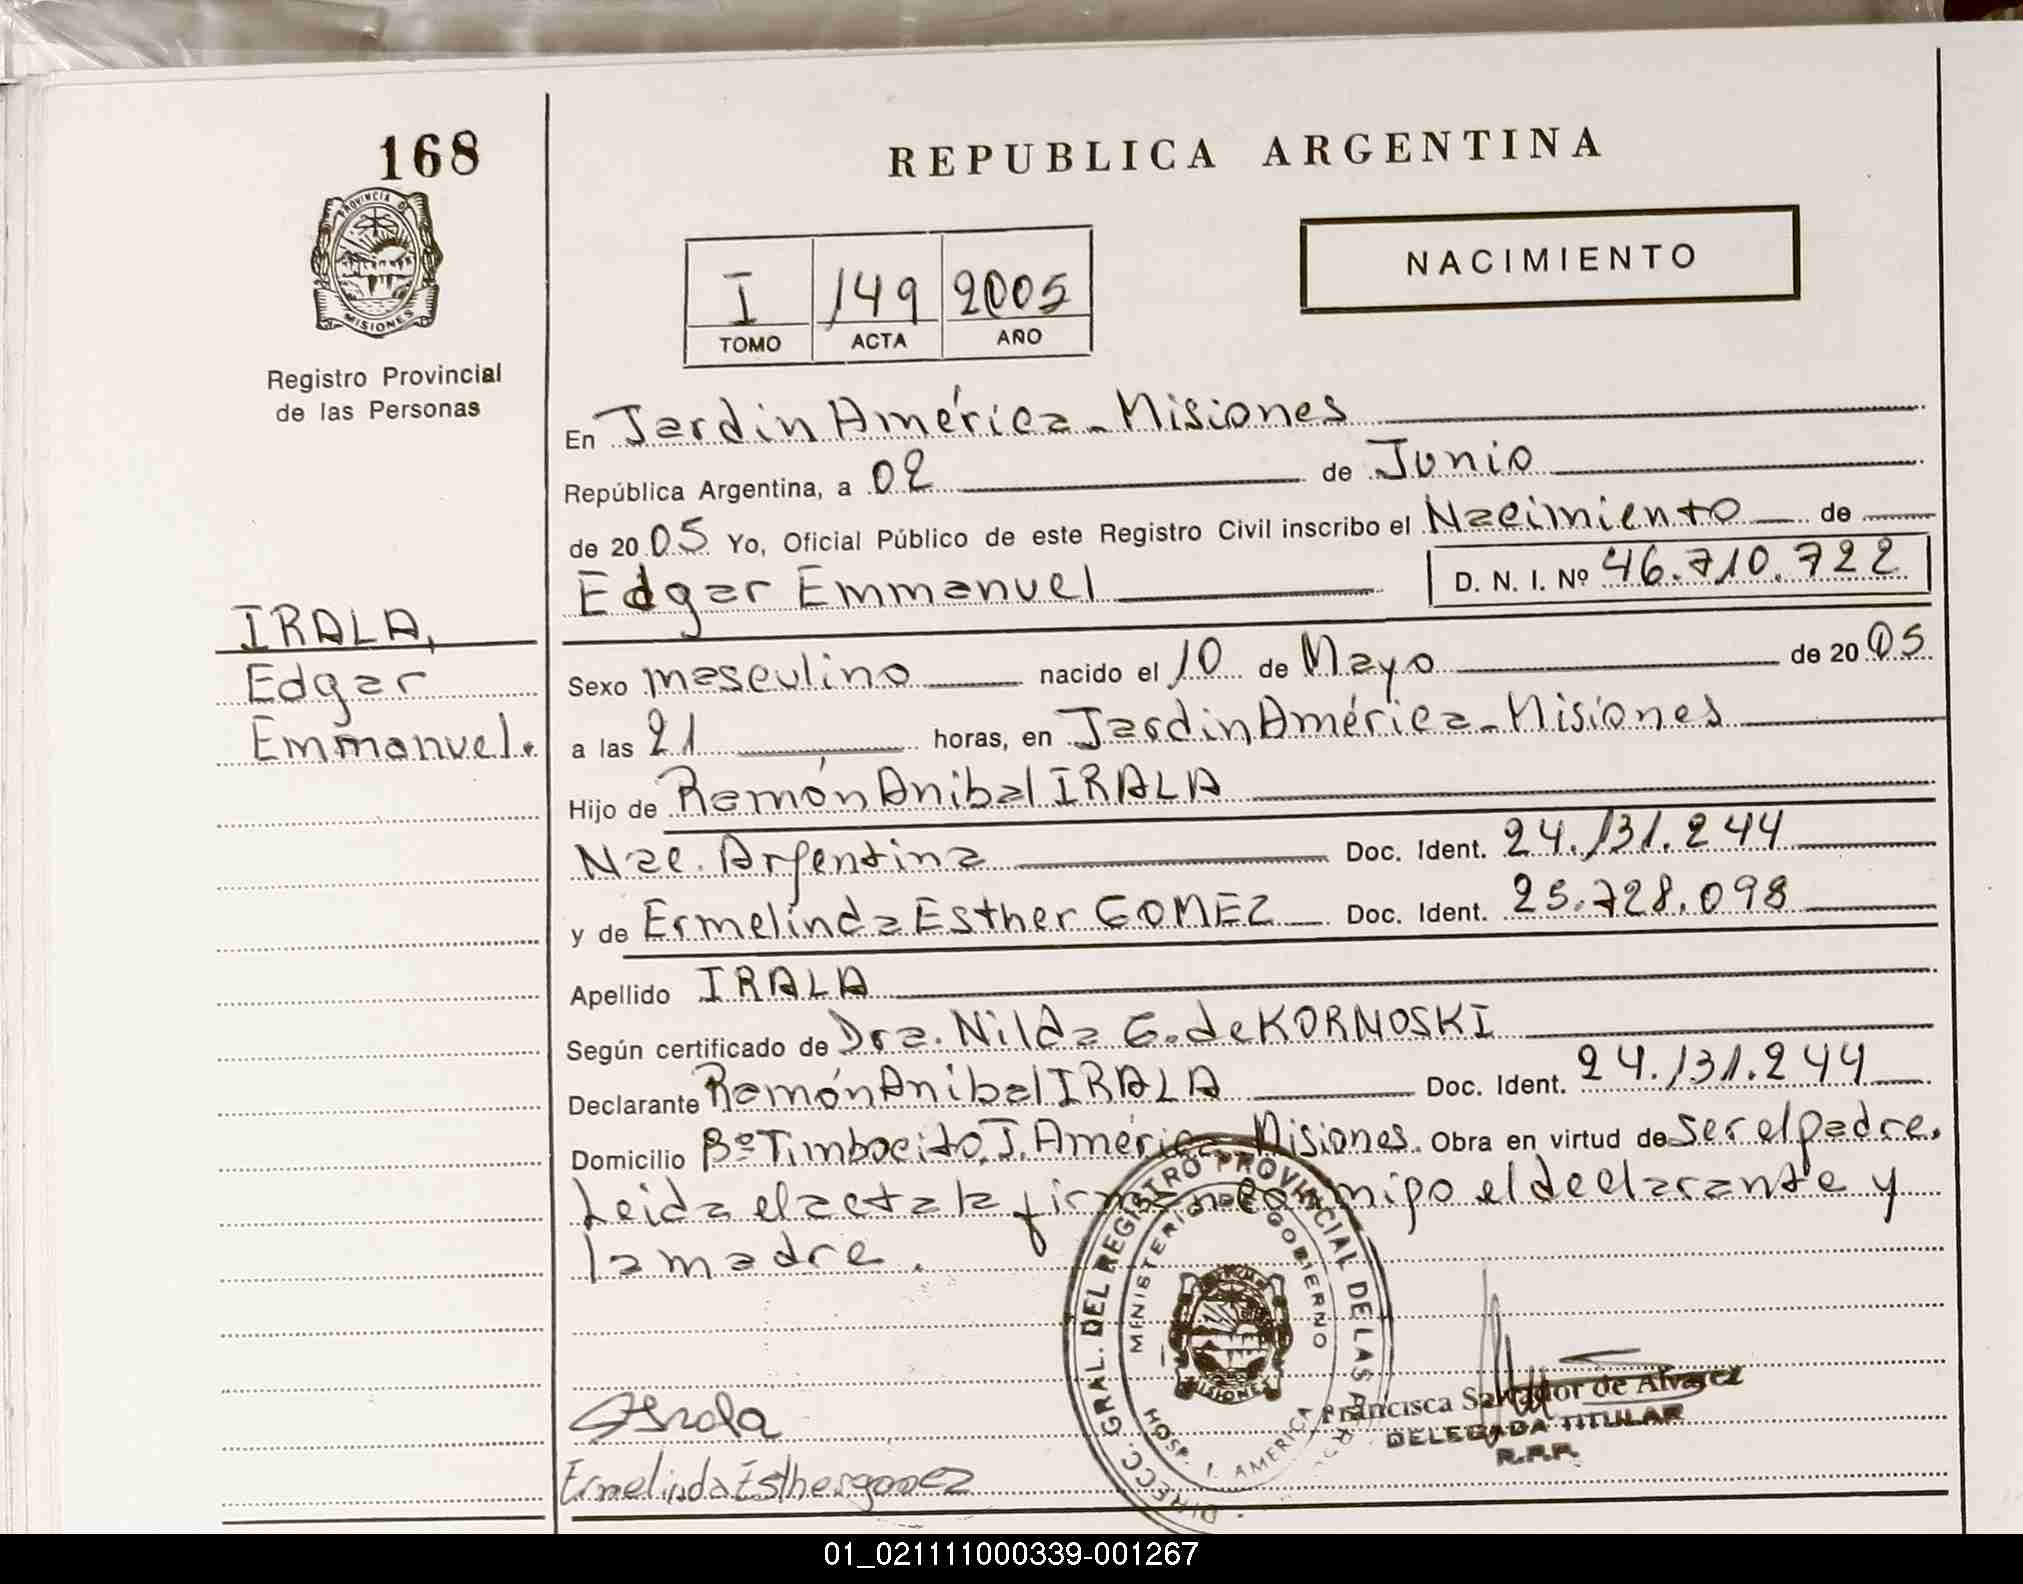 168
REPUBLICA ARGENTINA
PROVINCIA D
MISIONES
Registro Provincial
de las Personas
NACIMIENTO
I 149 2005
TOMO ACTA AÑO
En Jardin América - Misiones
República Argentina, a 02 de Junio
de 2005 Yo, Oficial Público de este Registro Civil inscribo el Nacimiento de
Edgar Emmanuel D. N. I. Nº 46.710.722
IRALA,
Edgar
Emmanuel.
Sexo masculino nacido el 10 de Mayo de 2005
a las 21 horas, en Jardin América - Misiones
Hijo de Ramón Anibal IRALA
Nac. Argentina Doc. Ident. 24.131.244
y de Ermelinda Esther GOMEZ Doc. Ident. 25.728.098
Apellido IRALA
Según certificado de Dra. Nilda G. de KORNOSKI
Declarante Ramón Anibal IRALA Doc. Ident. 24.131.244
Domicilio Bº Timbocito, J. América Misiones. Obra en virtud de ser el padre.
Leida el acta la firman conmigo el declarante y
la madre.
DIRECC. GRAL. DEL REGISTRO PROVINCIAL DE LAS
MINISTERIO DE GOBIERNO
MISIONES
HOSP. J. AMERICA
Irala
Ermelinda Esther gomez
Francisca Salvador de Alvarez
DELEGADA TITULAR
R.P.P.
01_021111000339-001267